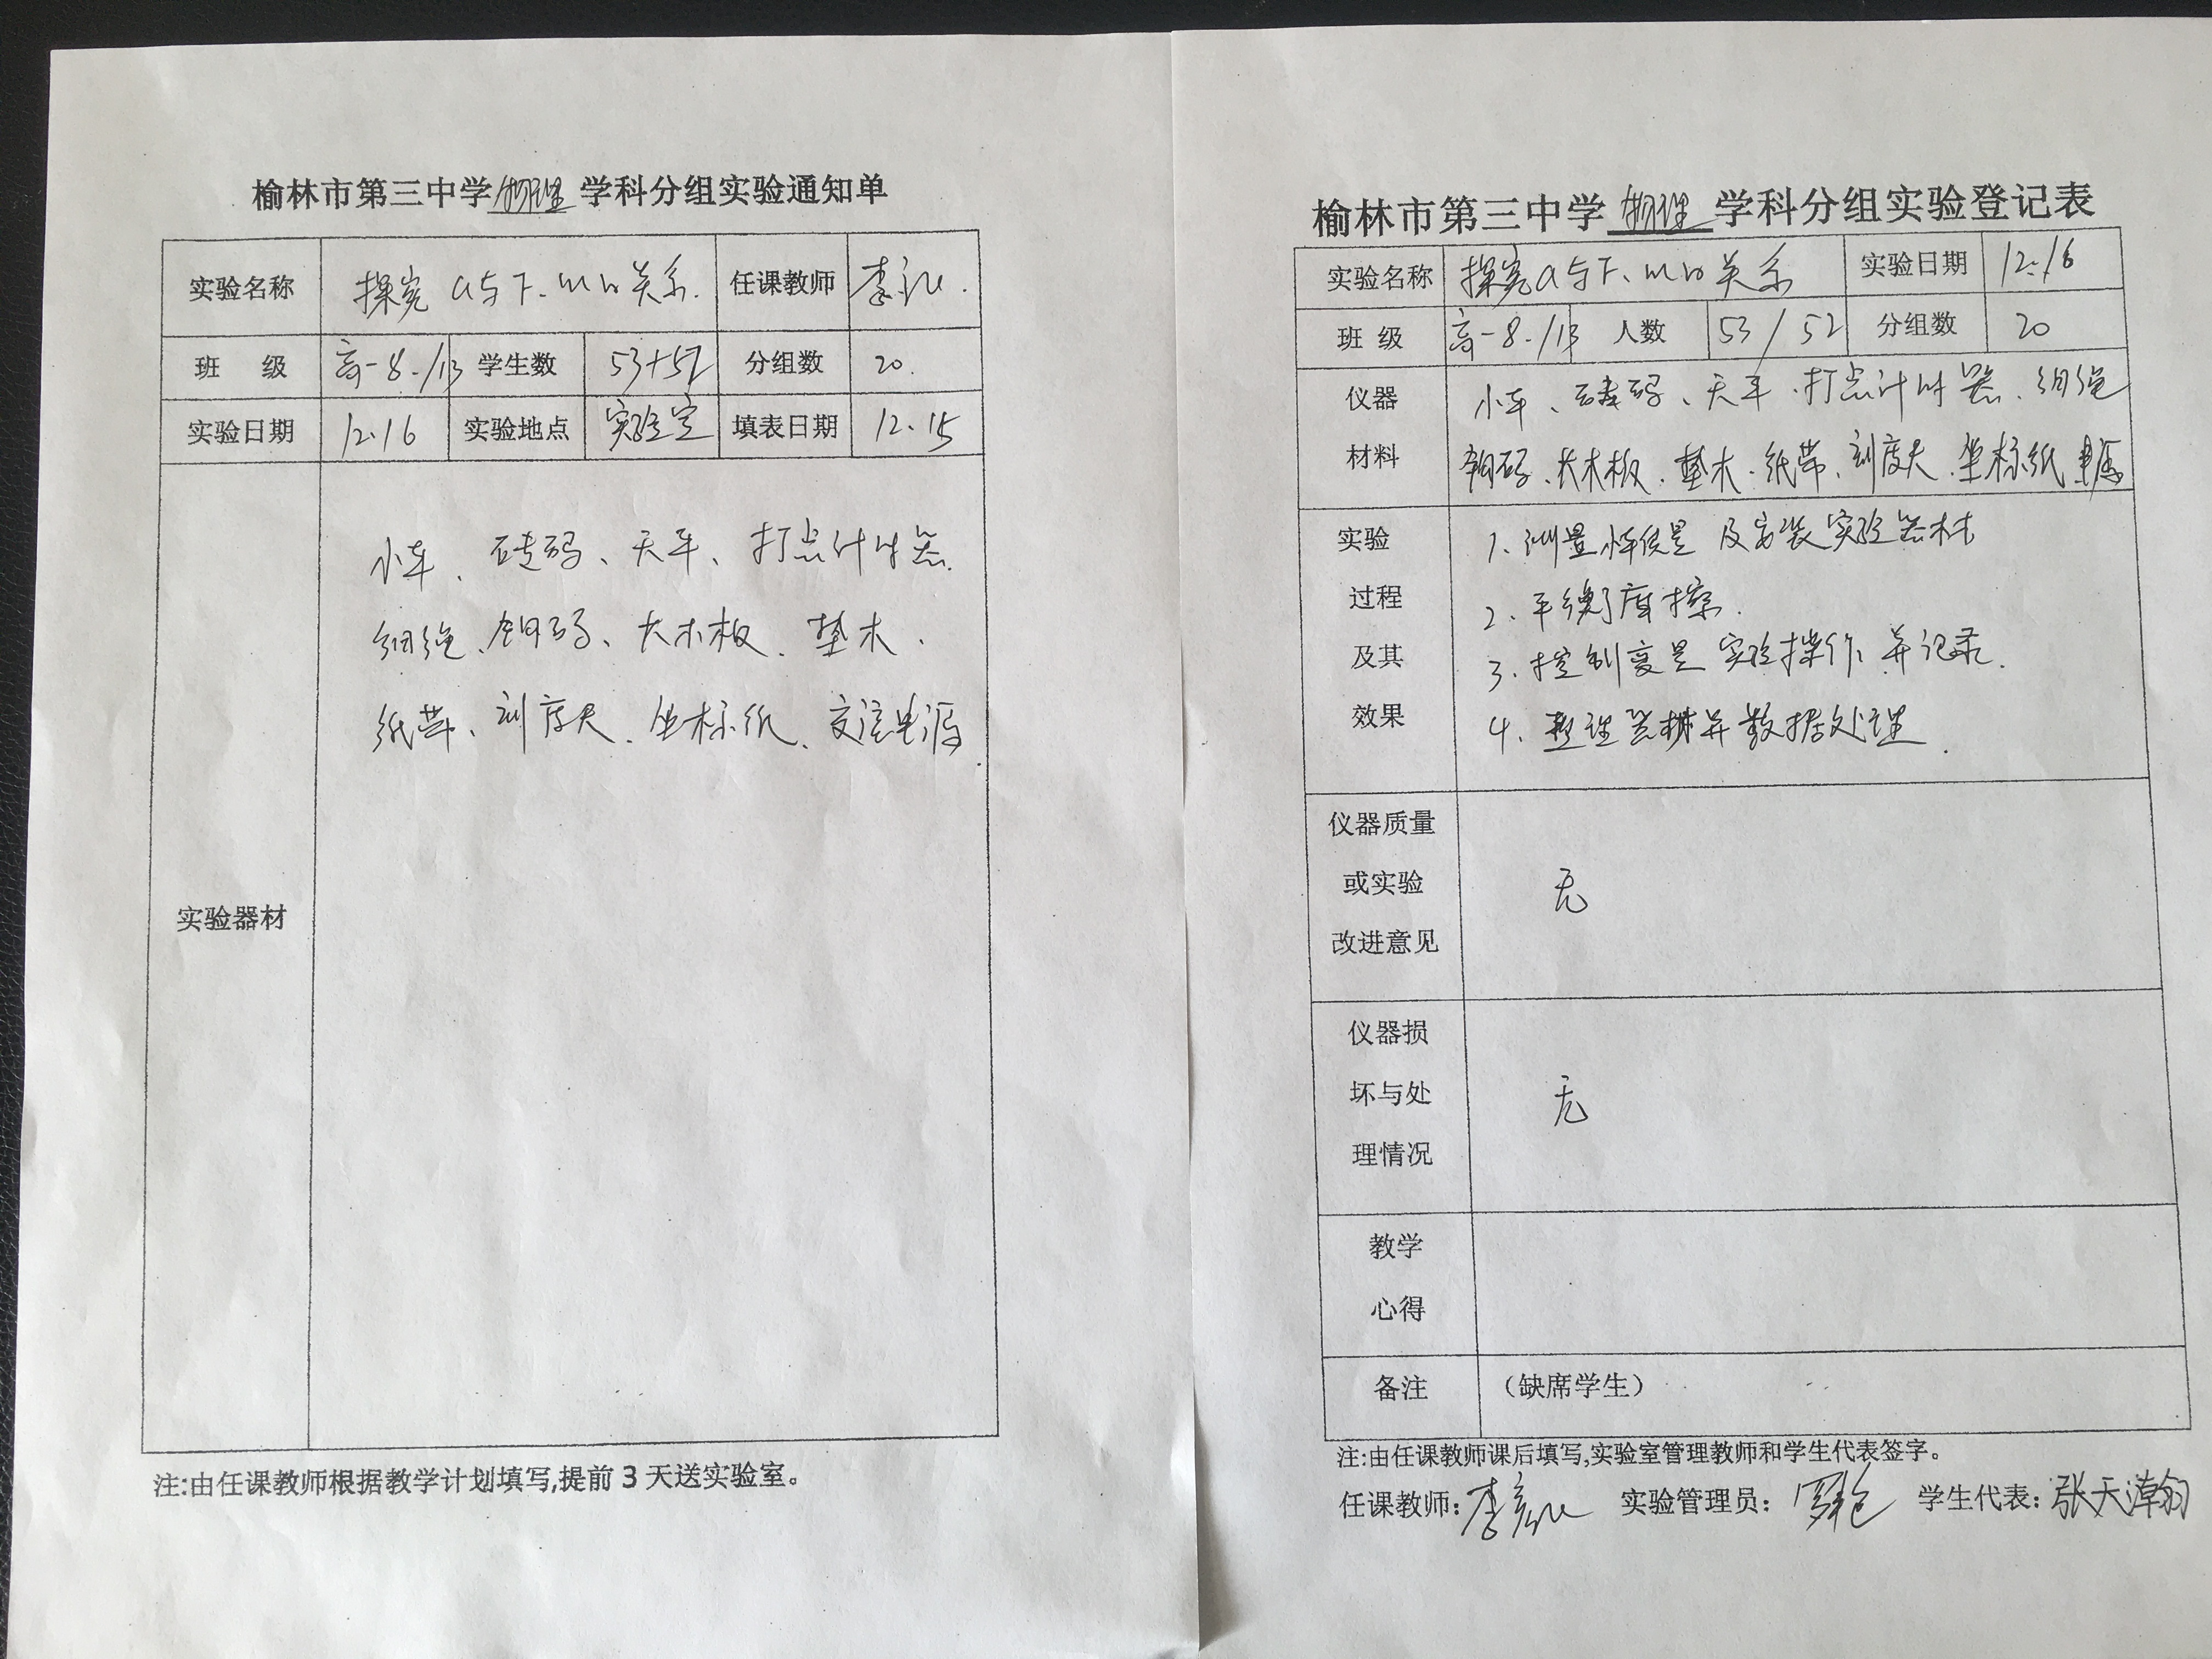 榆林市第三中学物理学科分组实验通知单
实验名称 探究a与F、m的关系. 任课教师 李
班 级 高一8./13 学生数 53+52 分组数 20.
实验日期 12.16 实验地点 实验室 填表日期 12.15
实验器材
小车、砝码、天平、打点计时器.
细绳、钩码、长木板、垫木.
纸带、刻度尺、坐标纸、交流电源.
注:由任课教师根据教学计划填写,提前3天送实验室。
榆林市第三中学物理学科分组实验登记表
实验名称 探究a与F、m的关系 实验日期 12.16
班 级 高一8./13 人数 53/52 分组数 20
仪器材料
小车、砝码、天平、打点计时器、细绳
钩码、长木板、垫木、纸带、刻度尺、坐标纸 电源
实验过程及其效果
1、测量小车质量及安装实验器材
2、平衡摩擦.
3、控制变量实验操作并记录.
4、整理器材并数据处理.
仪器质量或实验改进意见
无
仪器损坏与处理情况
无
教学心得
备注 （缺席学生）
注:由任课教师课后填写,实验室管理教师和学生代表签字。
任课教师: 李 实验管理员: 学生代表: 张天瀚